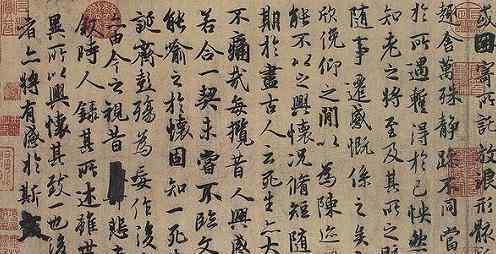 或因寄所託放浪形骸
趣舍萬殊靜躁不同當
於所遇蹔得於己怏然
知老之將至及其所之既
隨事遷感慨係之矣
欣俛仰之閒以為陳迹
能不以之興懷況脩短隨
期於盡古人云死生亦大
不痛哉每攬昔人興感
若合一契未嘗不臨文
能喻之於懷固知一死
誕齊彭殤為妄作後
亦由今之視昔悲
敘時人錄其所述雖世
異所以興懷其致一也後
者亦將有感於斯文